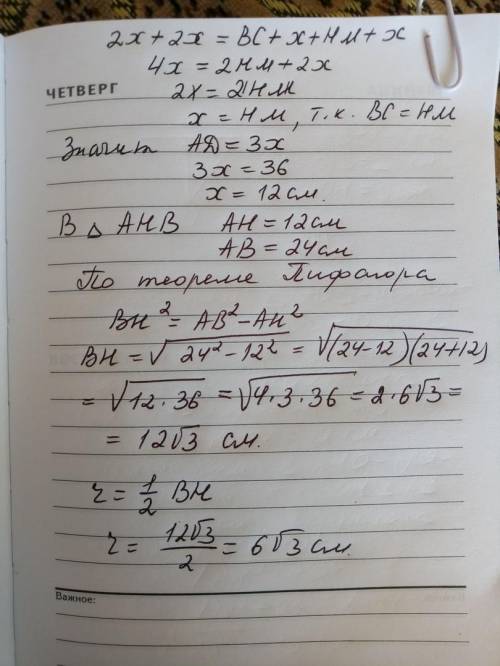 2x + 2x = BC + x + HM + x
4x = 2HM + 2x
ЧЕТВЕРГ
2x = 2HM
x = HM, т.к. BC = HM
Значит AD = 3x
3x = 36
x = 12 см.
В △ AHB AH = 12 см
AB = 24 см
По теореме Пифагора
BH² = AB² - AH²
BH = √(24² - 12²) = √((24-12)(24+12)
= √(12·36) = √(4·3·36) = 2·6√3 =
= 12√3 см.
r = 1/2 BH
r = 12√3/2 = 6√3 см.
Важное: